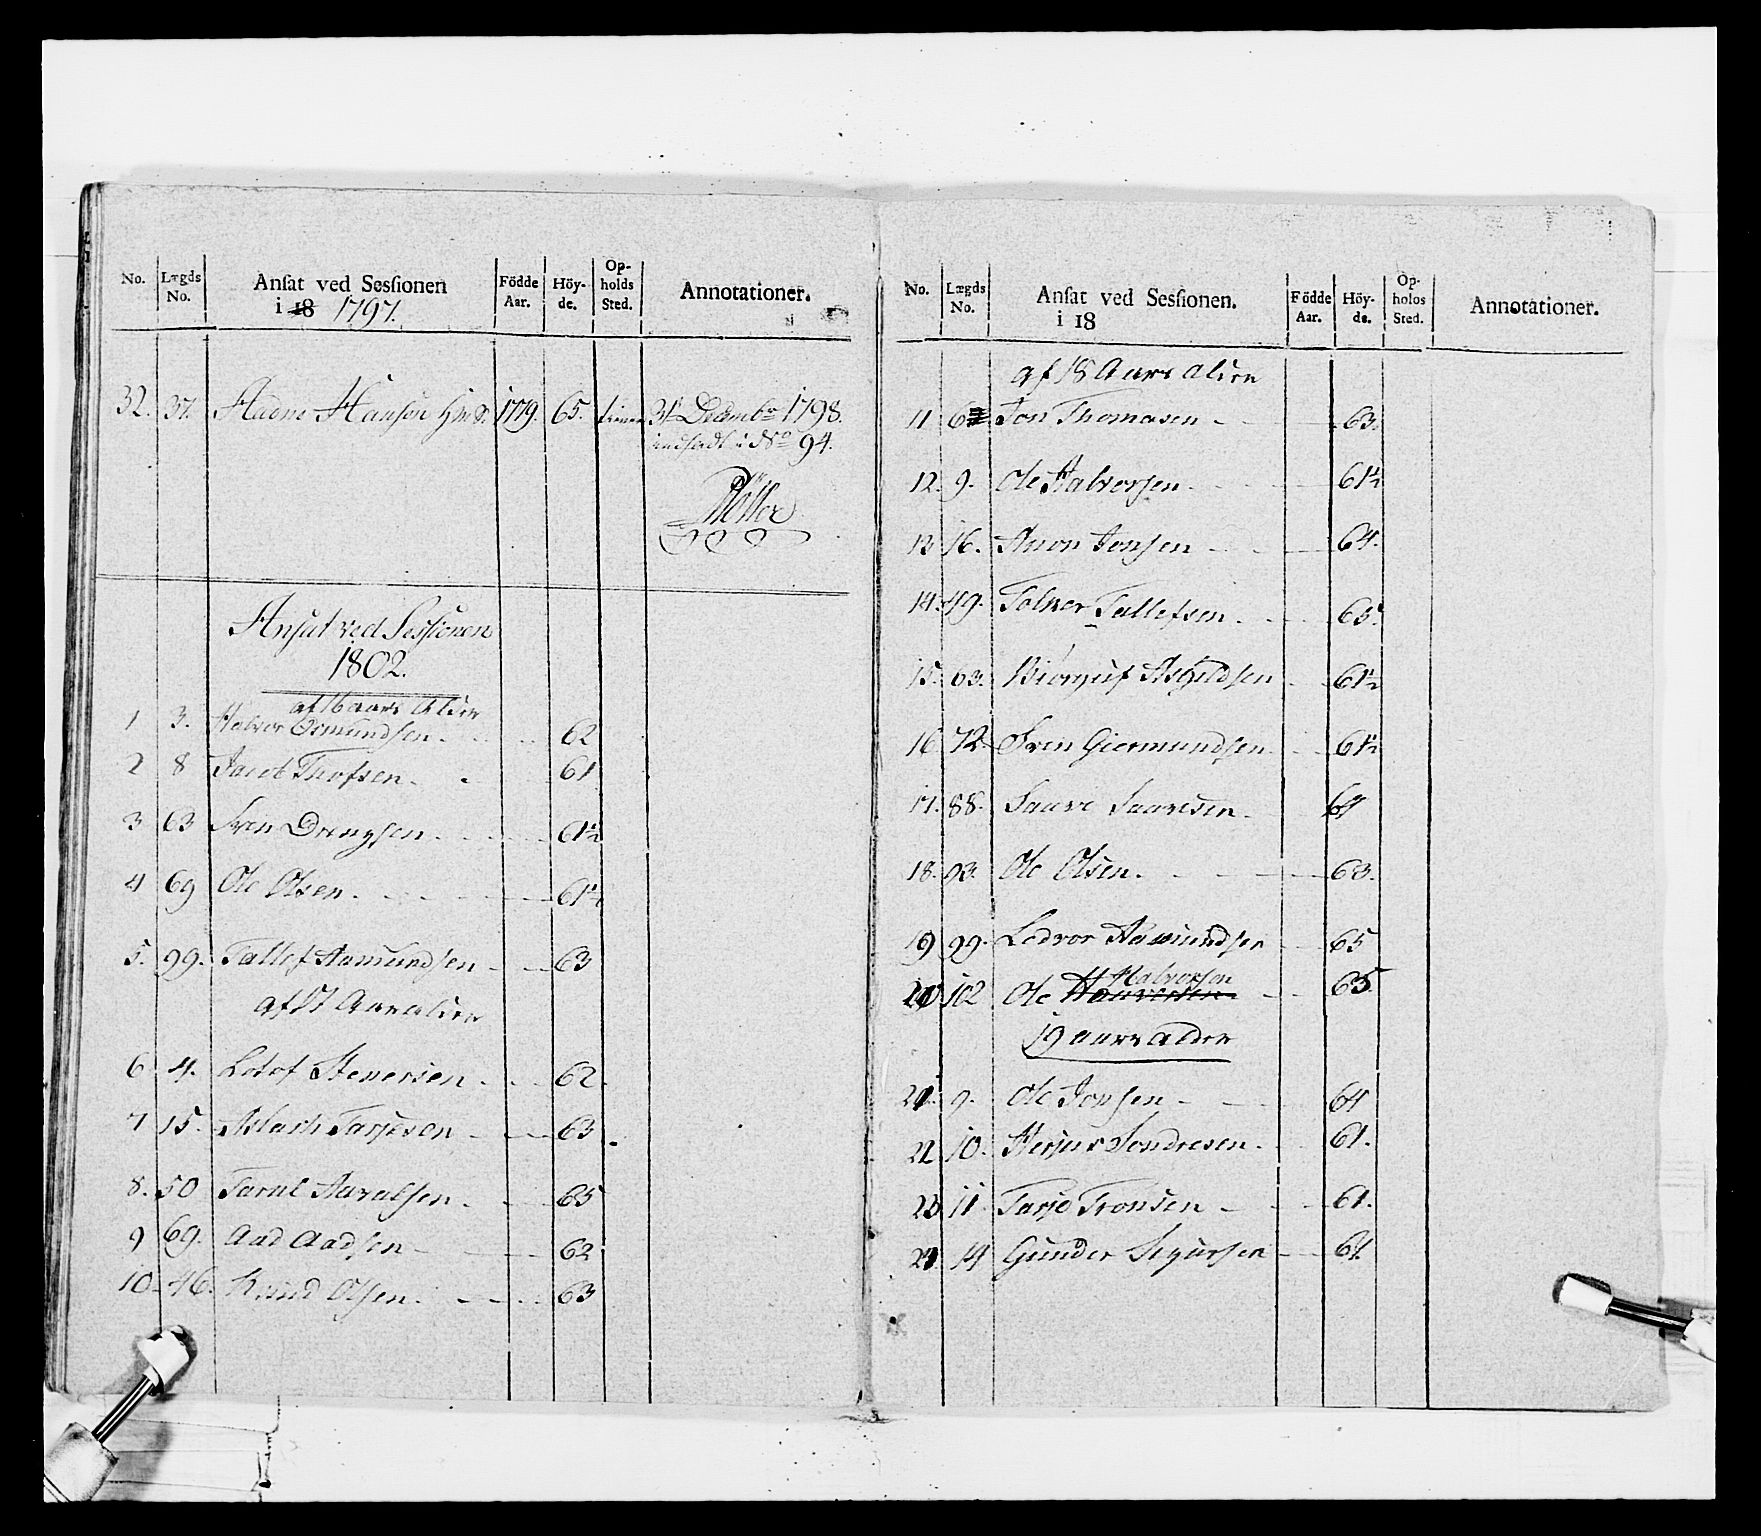 No. Lægds No. Ansat ved Sessionen i 18 1797. Födde Aar. Höyde. Opholds Sted. Annotationer.
32. 37. Hansen 1779. 65. 31 Decembr 1798.
indsadt i No 94.
Möller
Ansat ved Sessionen
1802.
af 16 aars Alder
1 3. Halvor Osmundsen. 62
2 8 Jacob Thofsen. 61
3 63 Sven Drengsen. 61½
4 69 Ole Olsen. 61½
5. 99. Tallef Aamundsen 63
af 17 Aars alder
6 4. 62.
7 15. Aslach Tarjesen 63
8. 50 Aavalsen. 65
9 69. Aad Aadsen 62
10. 46. Knud Olsen. 63
No. Lægds No. Ansat ved Sessionen. i 18 Födde Aar. Höyde. Opholds Sted. Annotationer.
af 18 Aars Alder
11 6 Jon Thomasen 63.
12. 9. Ole Halvorsen. 61½
13 16. Anon Jonsen 64.
14. 49. Folker Tallefsen. 65.
15. 63. 61½
16. 72. Sven Giermundsen. 61½
17. 88. Saave Saavesen. 64
18. 93. Ole Olsen. 63.
19 99. Ledvor Aamundsen 65
20 102 Ole Halvorsen 65.
19 aars alder
21. 9. Ole Jonsen 64
22 10. Herjus Sondresen. 61.
23 11. Tarje Tronsen 61.
24. 14 Gunder Sigursen 61.